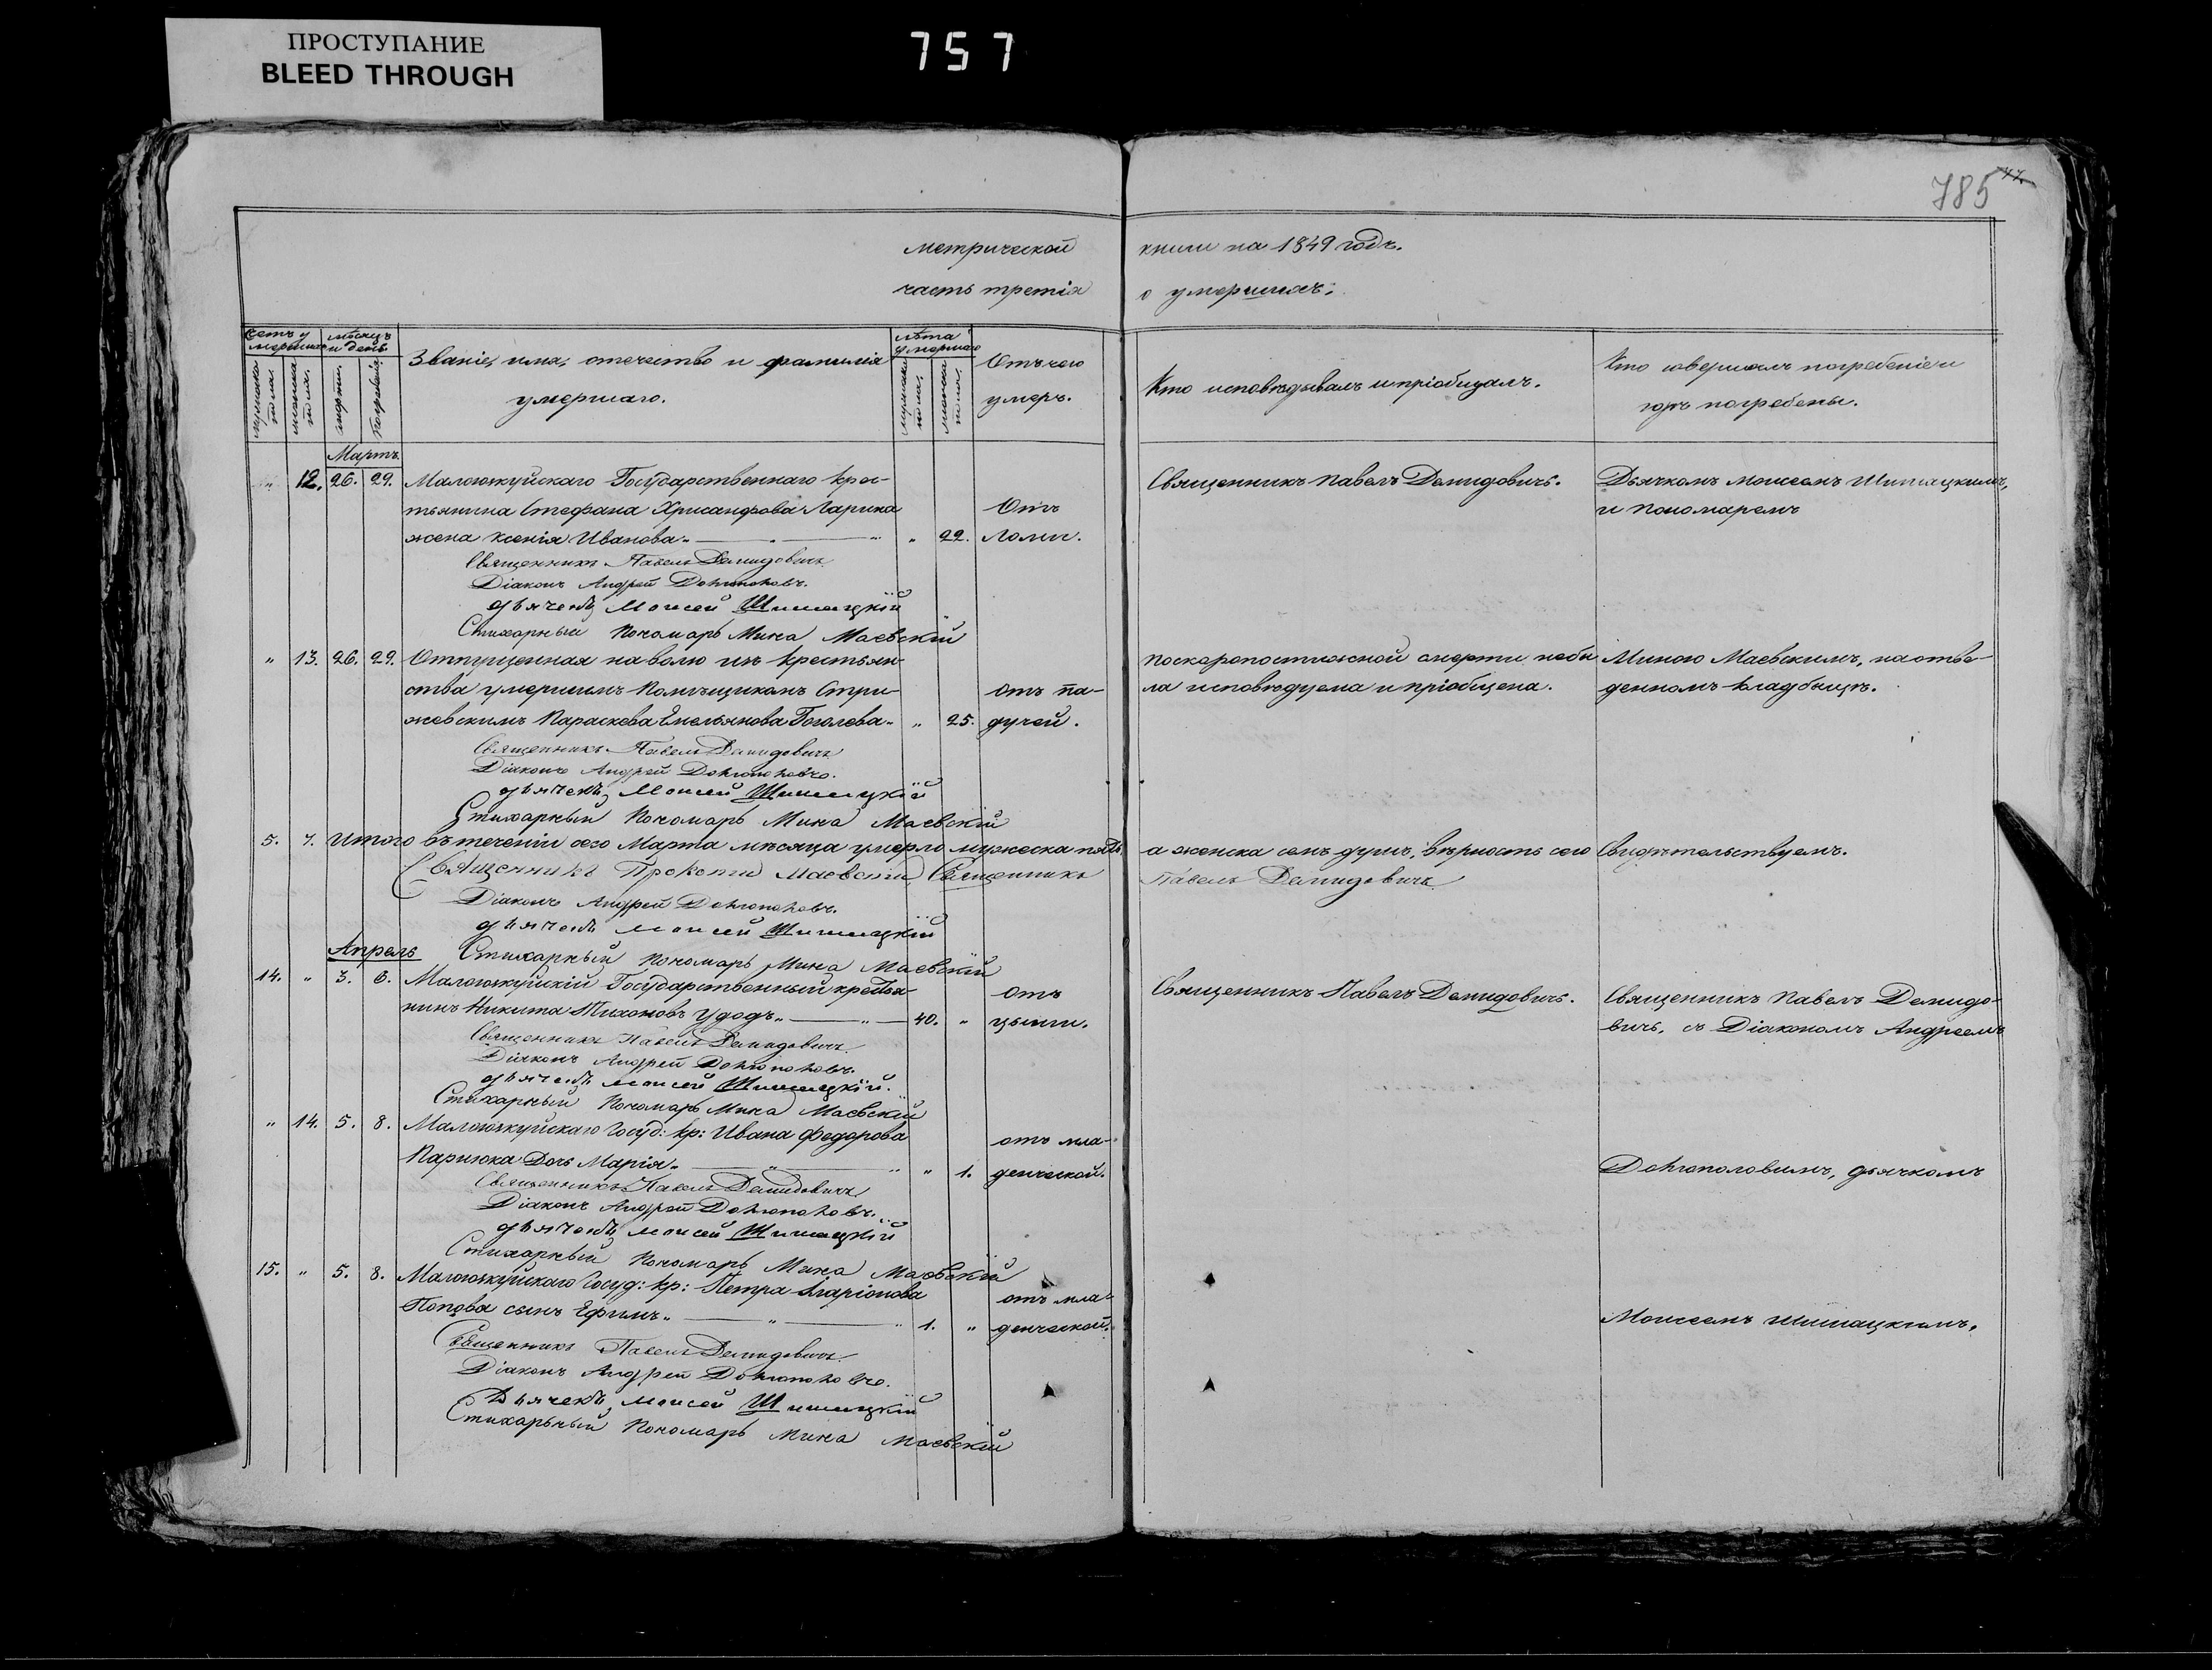 ПРОСТУПАНИЕ
BLEED THROUGH
757
785
метрической книги на 1849 годъ.
часть третія о умершихъ:
Счетъ умершихъ
мужеска пола.
женска пола.
мѣсяцъ и день
смерти.
погребенія.
Званіе, имя, отечество и фамилія
умершаго.
лѣта умершаго
мужеска пола.
женска пола.
Отъ чего
умеръ.
Кто исповѣдывалъ и пріобщалъ.
Кто совершалъ погребеніе и
гдѣ погребены.
Мартъ.
" 12. 26. 29. Малоюжуйскаго Государственнаго крес-
тьянина Стефана Хрисанфова Ларика Отъ
жена Ксенія Иванова " 22. ломи.
Священникъ Павелъ Демидовичъ.
Дьячкомъ Моисеемъ Шишацкимъ,
и Пономаремъ
Священникъ Павелъ Демидовичъ
Діаконъ Андрей
дьячекъ Моисей Шишацкій
Стихарный Пономарь Мина Маевскій
" 13. 26. 29. Отпущенная на волю изъ крестьян-
ства умершимъ Помѣщикомъ Стри- отъ па-
жевскимъ Параскева Емельянова Гоголева " 25. дучей.
поскоропостижной смерти небы
ла исповѣдуема и пріобщена.
Миною Маевскимъ, на отве-
денномъ кладбищѣ.
Священникъ Павелъ Демидовичъ
Діаконъ Андрей
дьячекъ Моисей Шишацкій
Стихарный Пономарь Мина Маевскій
5. 7. Итого въ теченіи сего Марта мѣсяца умерло мужеска пять а женска семь душъ, вѣрность сего Свидѣтельствуемъ.
Священникъ Прокопій Маевскій Священникъ Павелъ Демидовичъ
Діаконъ Андрей
дьячекъ Моисей Шишацкій
Апрель
Стихарный Пономарь Мина Маевскій
14. " 3. 6. Малоюжуйскій Государственный крестья- отъ
нинъ Никита Тихоновъ Удодъ 40. " цынги.
Священникъ Павелъ Демидовичъ.
Священникъ Павелъ Демидо-
вичъ, съ Діакономъ Андреемъ
Священникъ Павелъ Демидовичъ
Діаконъ Андрей
дьячекъ Моисей Шишацкій.
Стихарный Пономарь Мина Маевскій
" 14. 5. 8. Малоюжуйскаго Госуд: кр: Ивана Федорова отъ мла-
Дочь Марія " 1. денческой.
дьячкомъ
Священникъ Павелъ Демидовичъ
Діаконъ Андрей
дьячекъ Моисей Шишацкій
Стихарный Пономарь Мина Маевскій
15. " 5. 8. Малоюжуйскаго Госуд: кр: Петра Иларіонова отъ мла-
Попова сынъ Ефимъ 1. " денческой.
Моисеемъ Шишацкимъ.
Священникъ Павелъ Демидовичъ
Діаконъ Андрей
Дьячекъ Моисей Шишацкій
Стихарьный Пономарь Мина Маевскій